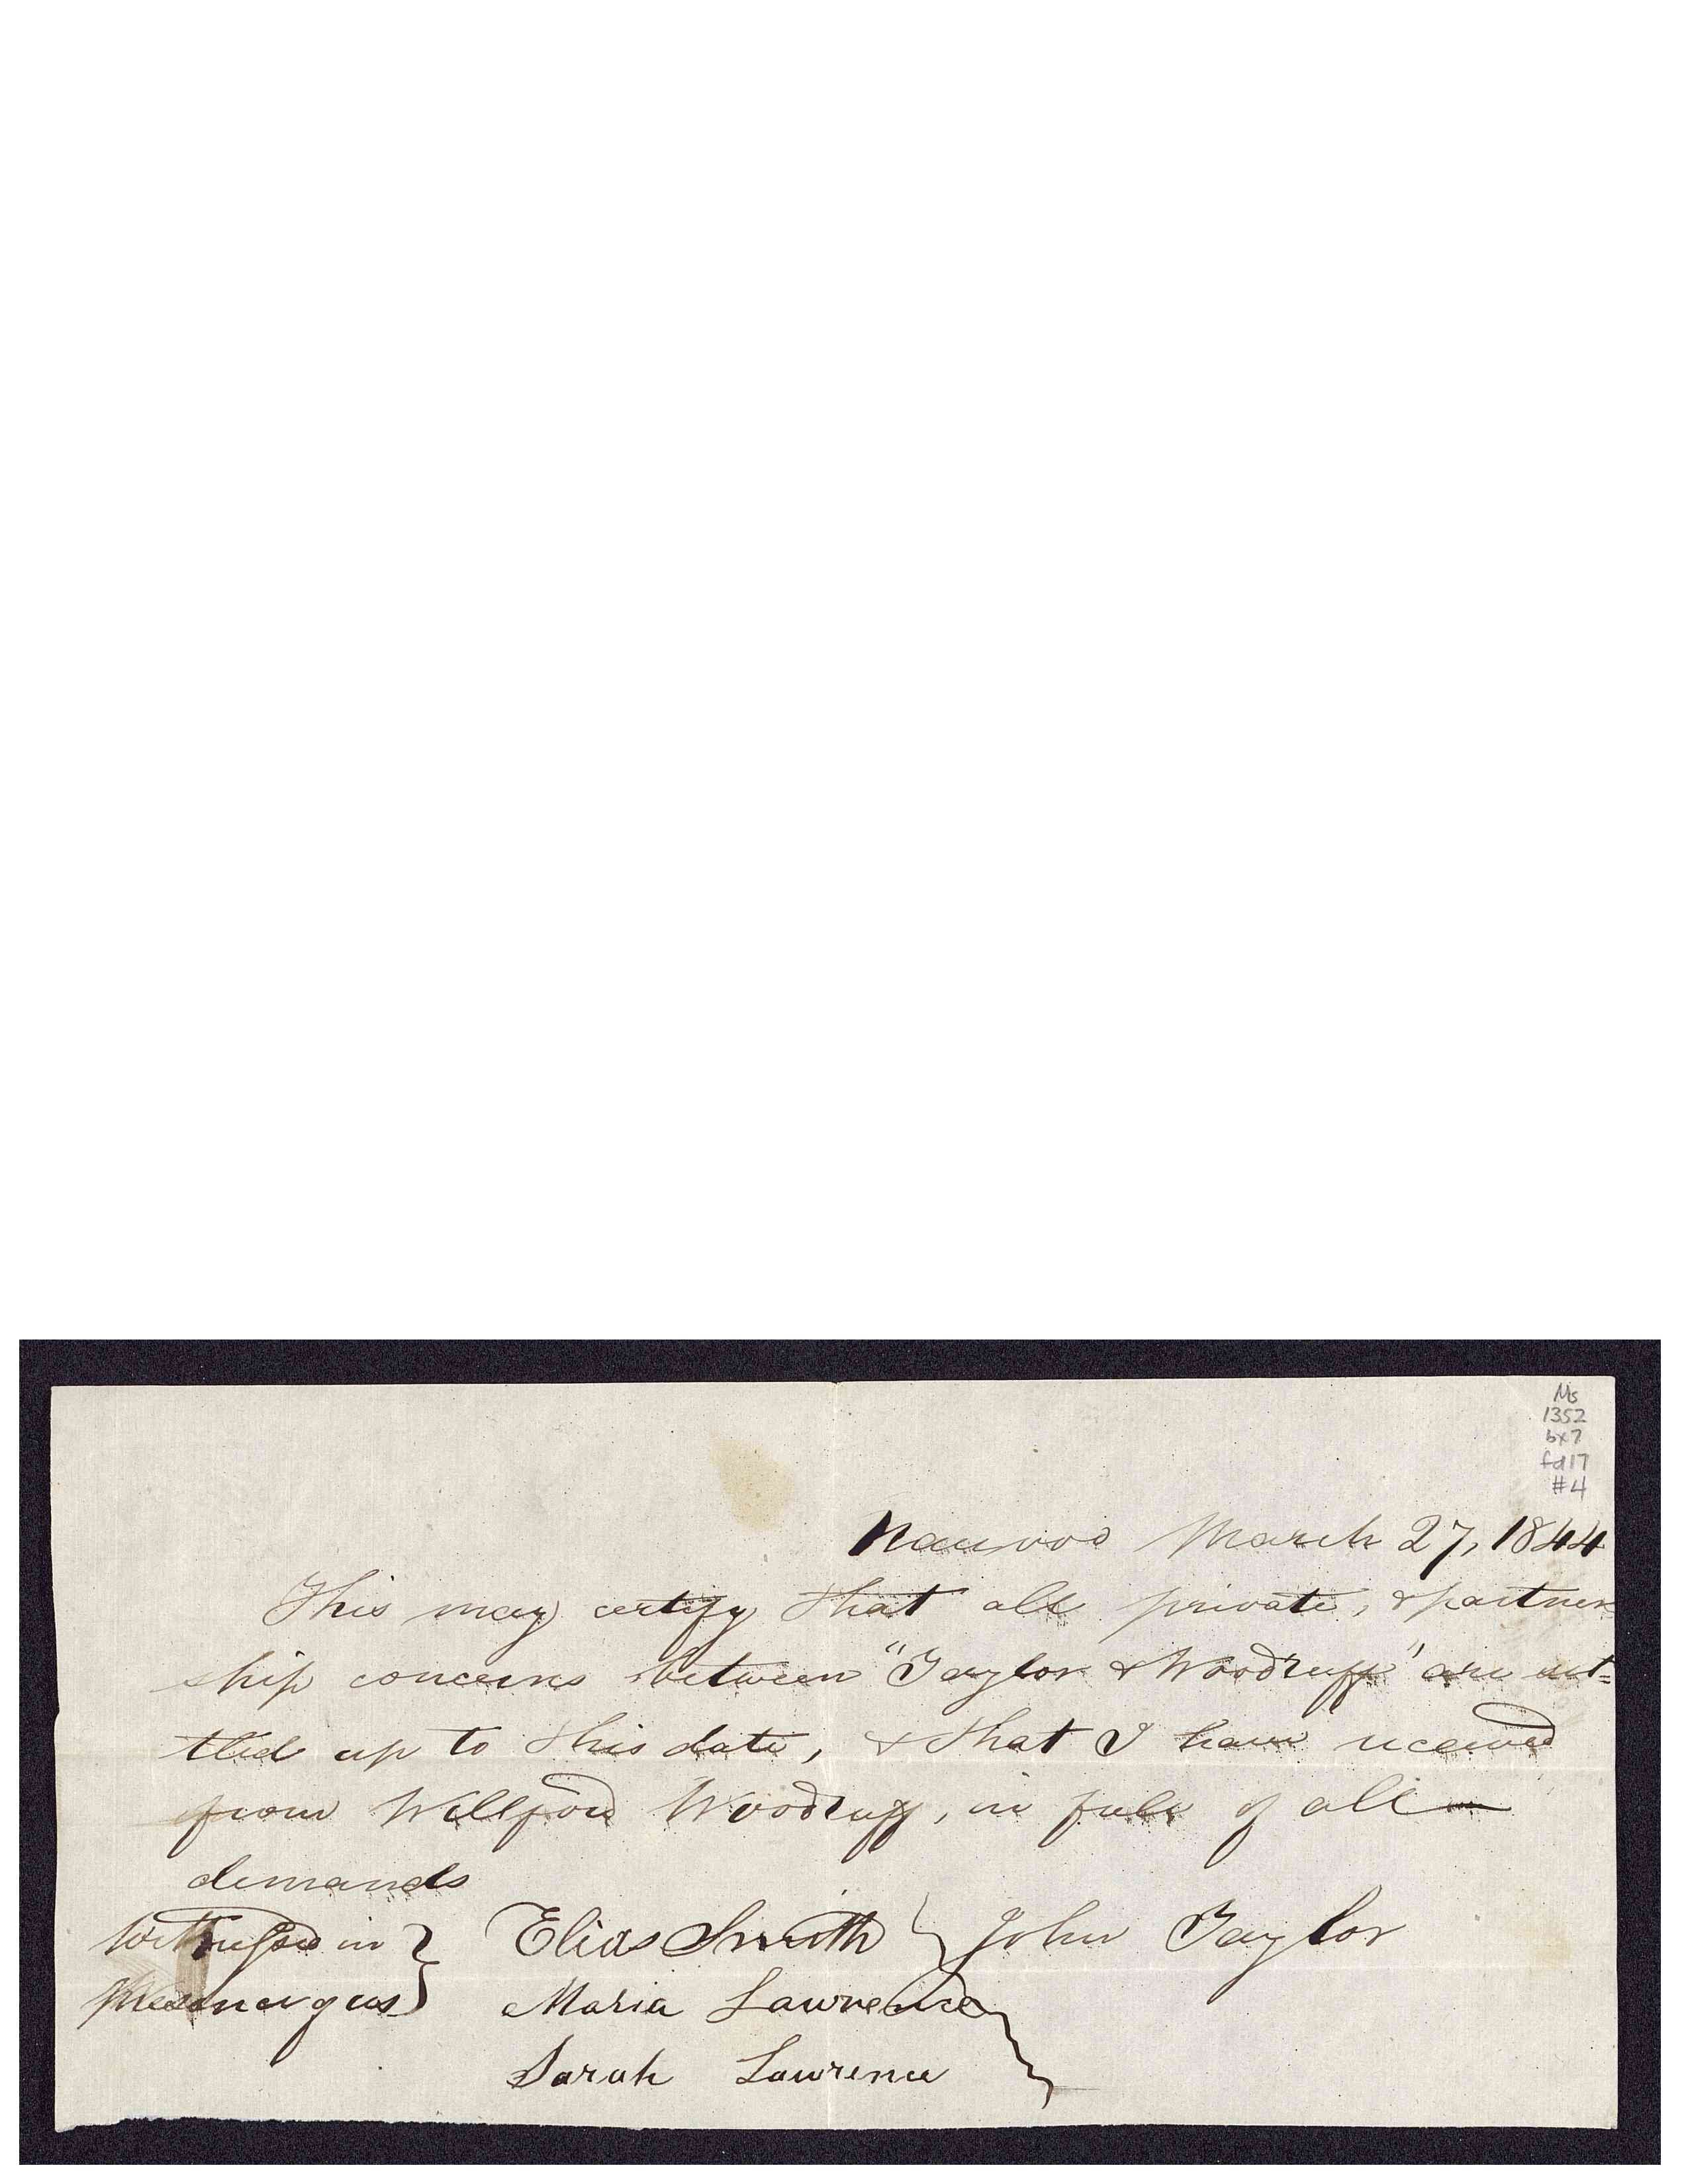 Ms
1352
bx7
fd17
#4
Nauvoo March 27, 1844
This may certify that all private, & partner
ship concerns between "Taylor & Woodruff" are set=
tled up to this date, & that I have received
from Willford Woodruff, in full of all —
demands
Witnessed in } Elias Smith } John Taylor
Maria Lawrence
Sarah Lawrence